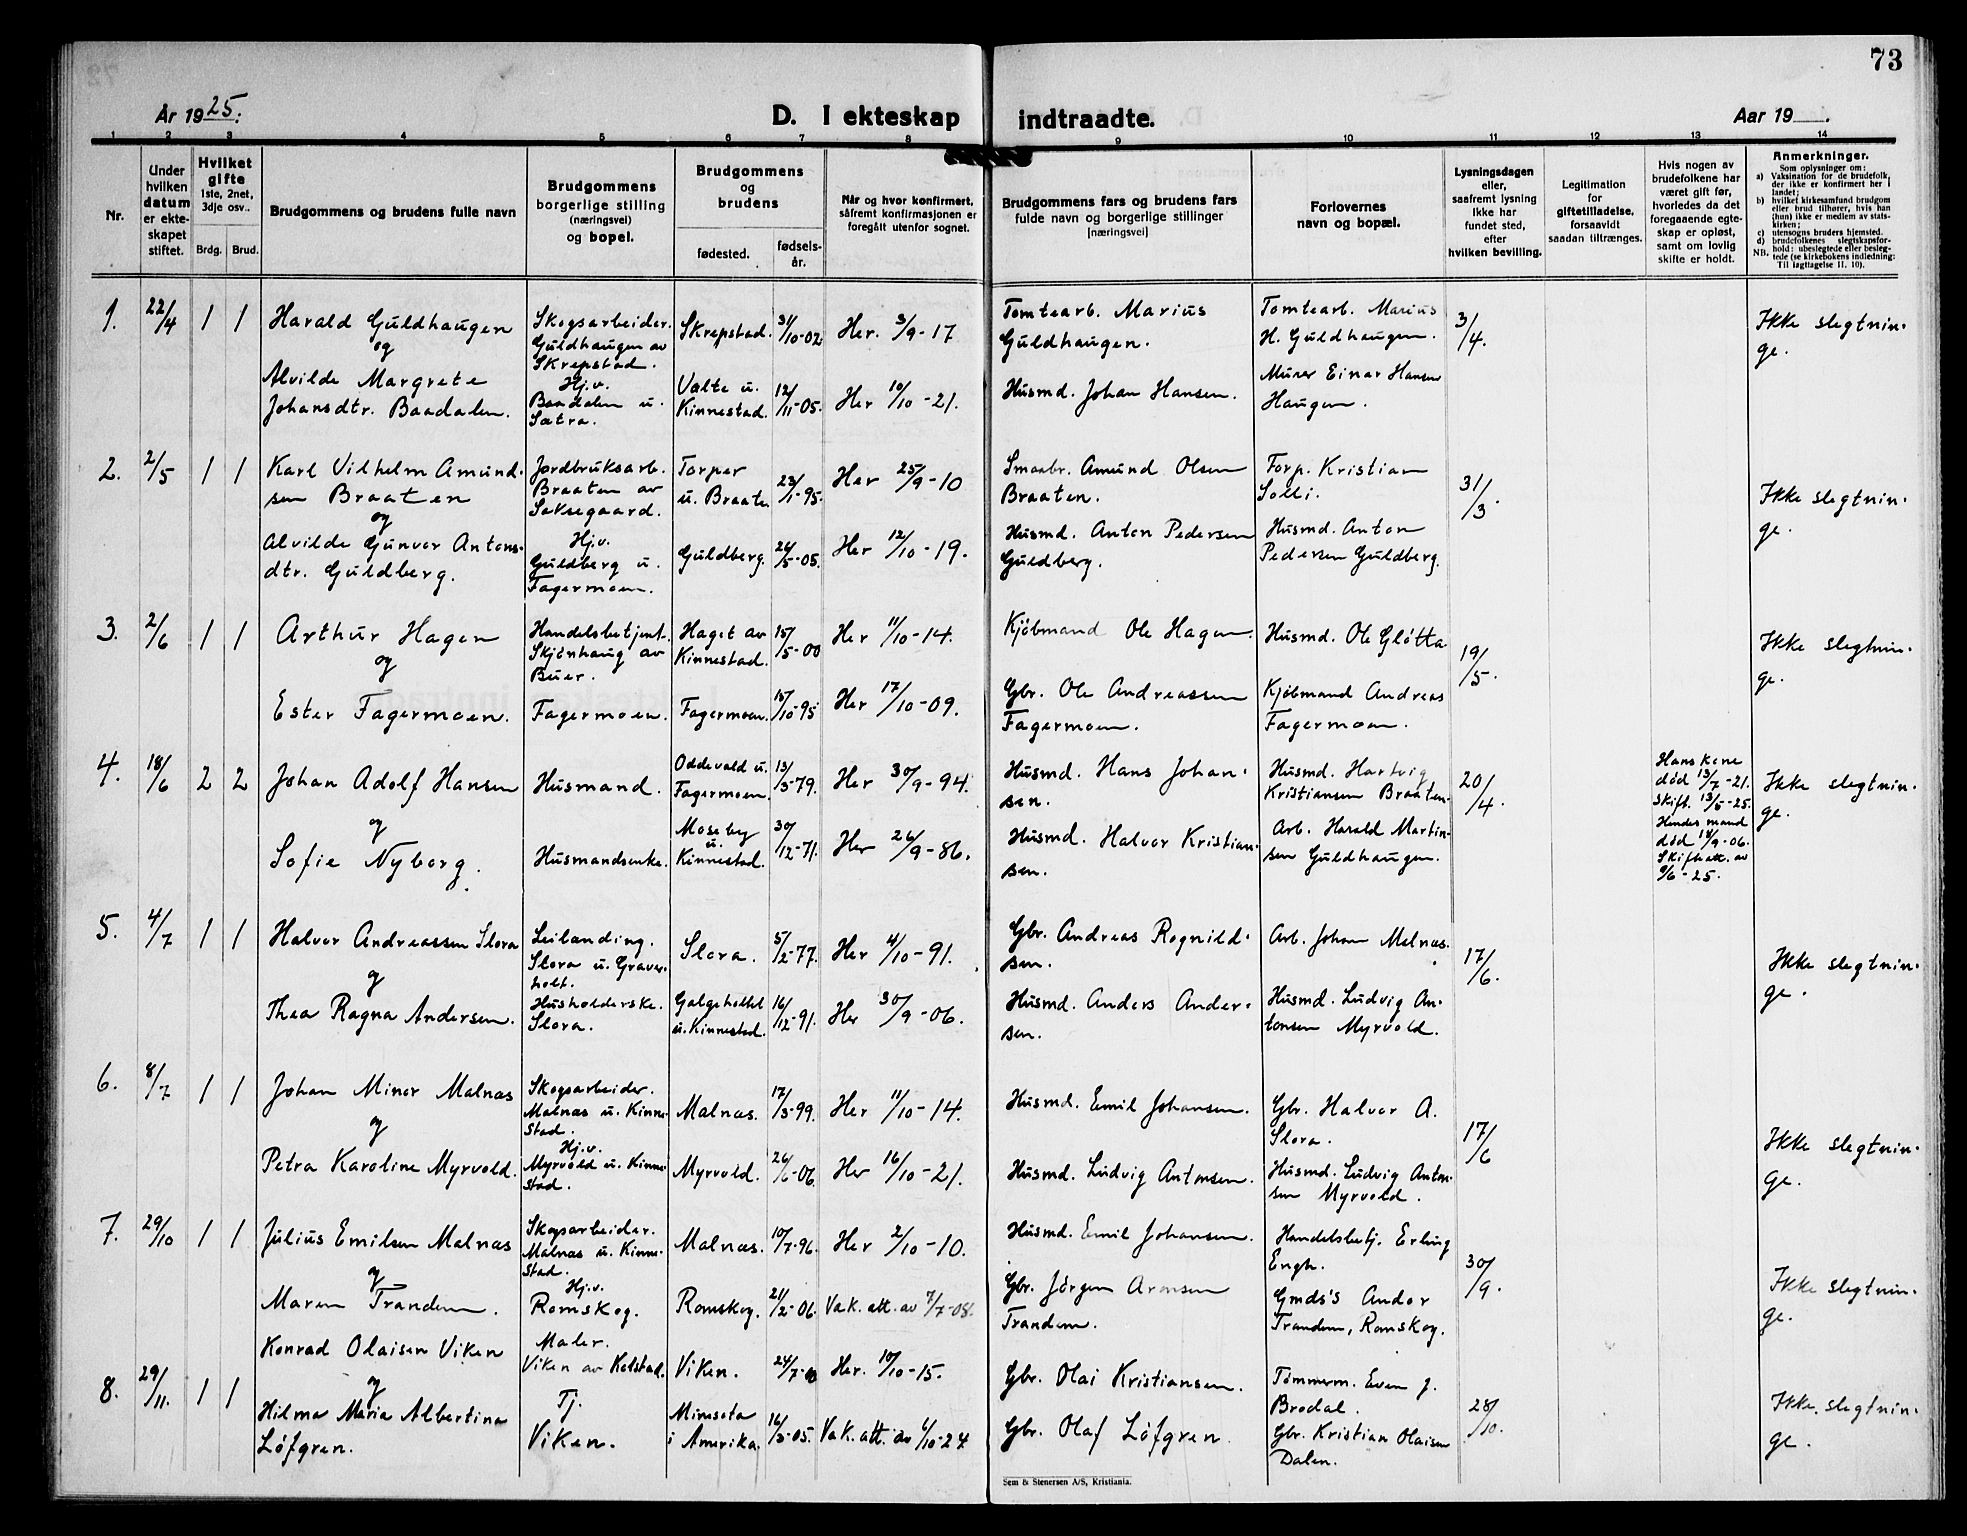 73
År 1925.
D. I ekteskap indtraadte.
Aar 19
1 2 3 4 5 6 7 8 9 10 11 12 13 14
Nr.
Under hvilken datum er ekteskapet stiftet.
Hvilket gifte
1ste, 2net, 3dje osv..
Brdg. Brud.
Brudgommens og brudens fulle navn
Brudgommens borgerlige stilling (næringsvei) og bopel.
Brudgommens og brudens
fødested.
fødselsår.
Når og hvor konfirmert, såfremt konfirmasjonen er foregått utenfor sognet.
Brudgommens fars og brudens fars fulde navn og borgerlige stillinger [næringsvei]
Forlovernes navn og bopæl.
Lysningsdagen eller, saafremt lysning ikke har fundet sted, efter hvilken bevilling.
Legitimation for giftetilladelse, forsaavidt saadan tiltrænges.
Hvis nogen av brudefolkene har været gift før, hvorledes da det foregaaende egteskap er opløst, samt om lovlig skifte er holdt.
Anmerkninger.
Som oplysninger om:
a) Vaksination for de brudefolk, der ikke er konfirmert her i landet;
b) hvilket kirkesamfund brudgom eller brud tilhører, hvis han (hun) ikke er medlem av statskirken;
c) utensogns bruders hjemsted.
d) brudefolkenes slegtskapsforhold: ubeslegtede eller beslegtede (se kirkebokens indledning:
NB. Til Iagttagelse II. 10).
1. 22/4 1 1
Harald Guldhaugen
og
Alvilde Margrete
Johansdtr. Baadalen.
Skogsarbeider.
Guldhaugen av
Skrepstad.
Hj.v.
Baadalen u.
Sætra.
Skrepstad. 31/10-02
Valte u.
Kinnestad. 12/11-05.
Her. 3/9-17
Her 10/10-21.
Tomtearb. Marius
Guldhaugen.
Husmd. Johan Hansen.
Tomtearb. Marius
H. Guldhaugen.
Murer Einar Hansen
Haugen.
3/4.
Ikke slegtnin-
ge.
2. 2/5 1 1
Karl Vilhelm Amund-
sen Braaten
og
Alvilde Gunvor Antons-
dtr. Guldberg.
Jordbruksarb.
Braaten av
Saksegaard.
Hj.v.
Guldberg u.
Fagermoen.
Torper
u. Braate 23/1-95.
Guldberg. 26/5-05.
Her 25/9-10
Her 12/10-19.
Smaabr. Amund Olsen
Braaten.
Husmd. Anton Pedersen
Guldberg.
Forp. Kristian
Solli.
Husmd. Anton
Pedersen Guldberg.
31/3.
Ikke slegtnin-
ge.
3. 2/6 1 1
Arthur Hagen
og
Ester Fagermoen.
Handelsbetjent.
Skjønhaug av
Buer.
Fagermoen.
Haget av
Kinnestad. 15/5-00
Fagermoen. 15/10-95
Her 11/10-14.
Her 17/10-09.
Kjøbmand Ole Hagen.
Gbr. Ole Andreassen
Fagermoen.
Husmd. Ole Gløtta
Kjøbmand Andreas
Fagermoen.
19/5.
Ikke slegtnin-
ge.
4. 18/6 2 2
Johan Adolf Hansen
og
Sofie Nyborg.
Husmand.
Husmandsenke.
Oddevald u.
Fagermoen. 13/3-79.
Moseby
u.
Kinnestad. 30/12-71.
Her 30/9-94.
Her 26/9-86.
Husmd. Hans Johan-
sen.
Husmd. Halvor Kristian-
sen.
Husmd. Hartvig
Kristiansen Braaten.
Arb. Harald Martin-
sen Guldhaugen.
20/4.
Hans kone
død 13/7-21.
Skift. 13/5-25.
Hendes mand
død 14/9-06.
Skifteatt. av
9/6-25.
Ikke slegtnin-
ge.
5. 4/7 1 1
Halvor Andreassen Slora
og
Thea Ragna Andersen.
Leilanding.
Slora u. Graver-
holt.
Husholderske.
Slora.
Slora. 5/2-77.
Galgeholtet
u. Kinnestad. 16/12-91.
Her 4/10-91.
Her 30/9-06.
Gbr. Andreas Rognild-
sen.
Husmd. Anders Ander-
sen.
Arb. Johan Malnæs.
Husmd. Ludvig An-
tonsen Myrvold.
17/6.
Ikke slegtnin-
ge.
6. 8/7 1 1
Johan Minor Malnæs
og
Petra Karoline Myrvold.
Skogsarbeider.
Malnæs u. Kinne-
stad.
Hj.v.
Myrvold u. Kinne-
stad.
Malnæs. 17/3-99.
Myrvold. 26/6-06.
Her 11/10-14.
Her 16/10-21.
Husmd. Emil Johansen.
Husmd. Ludvig Antonsen.
Gbr. Halvor A.
Slora.
Husmd. Ludvig Anton-
sen Myrvold.
17/6
Ikke slegtnin-
ge.
7. 29/10 1 1
Julius Emilsen Malnæs
og
Maren Trandem.
Skogsarbeider.
Malnæs u. Kinne-
stad.
Hj.v.
Romskog.
Malnæs. 10/7-96.
Romskog. 21/2-06.
Her 2/10-10.
Vak. att. av 7/7-08.
Husmd. Emil Johansen.
Gbr. Jörgen Arnesen
Trandem.
Handelsbetj. Erling
Engh.
Gmds's Andor
Trandem, Romskog.
30/9.
Ikke slegtnin-
ge.
8. 29/11. 1 1
Konrad Olaisen Viken
og
Hilma Maria Albertina
Löfgren.
Maler.
Viken av Kolstad.
Tj.
Viken.
Viken. 24/7-0
Minesota
i Amerika. 16/3-05.
Her. 10/10-15.
Vak. att. av 6/10-24
Gbr. Olai Kristiansen.
Gbr. Olaf Löfgren.
Tömmerm. Even J.
Brodal.
Gbr. Kristian Olaisen
Dalen.
28/10.
Ikke slegtnin-
ge.
Sem & Stenersen A/S, Kristiania.